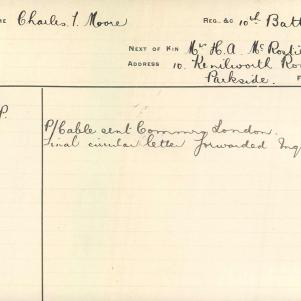 ME Charles I. Moore REG. &C 10th Batt
NEXT OF KIN Mr H. A. Mc
ADDRESS 10. Kenilworth Ro
Parkside. F
P.
P/Cable sent Commrg London.
Final circular letter forwarded Inq